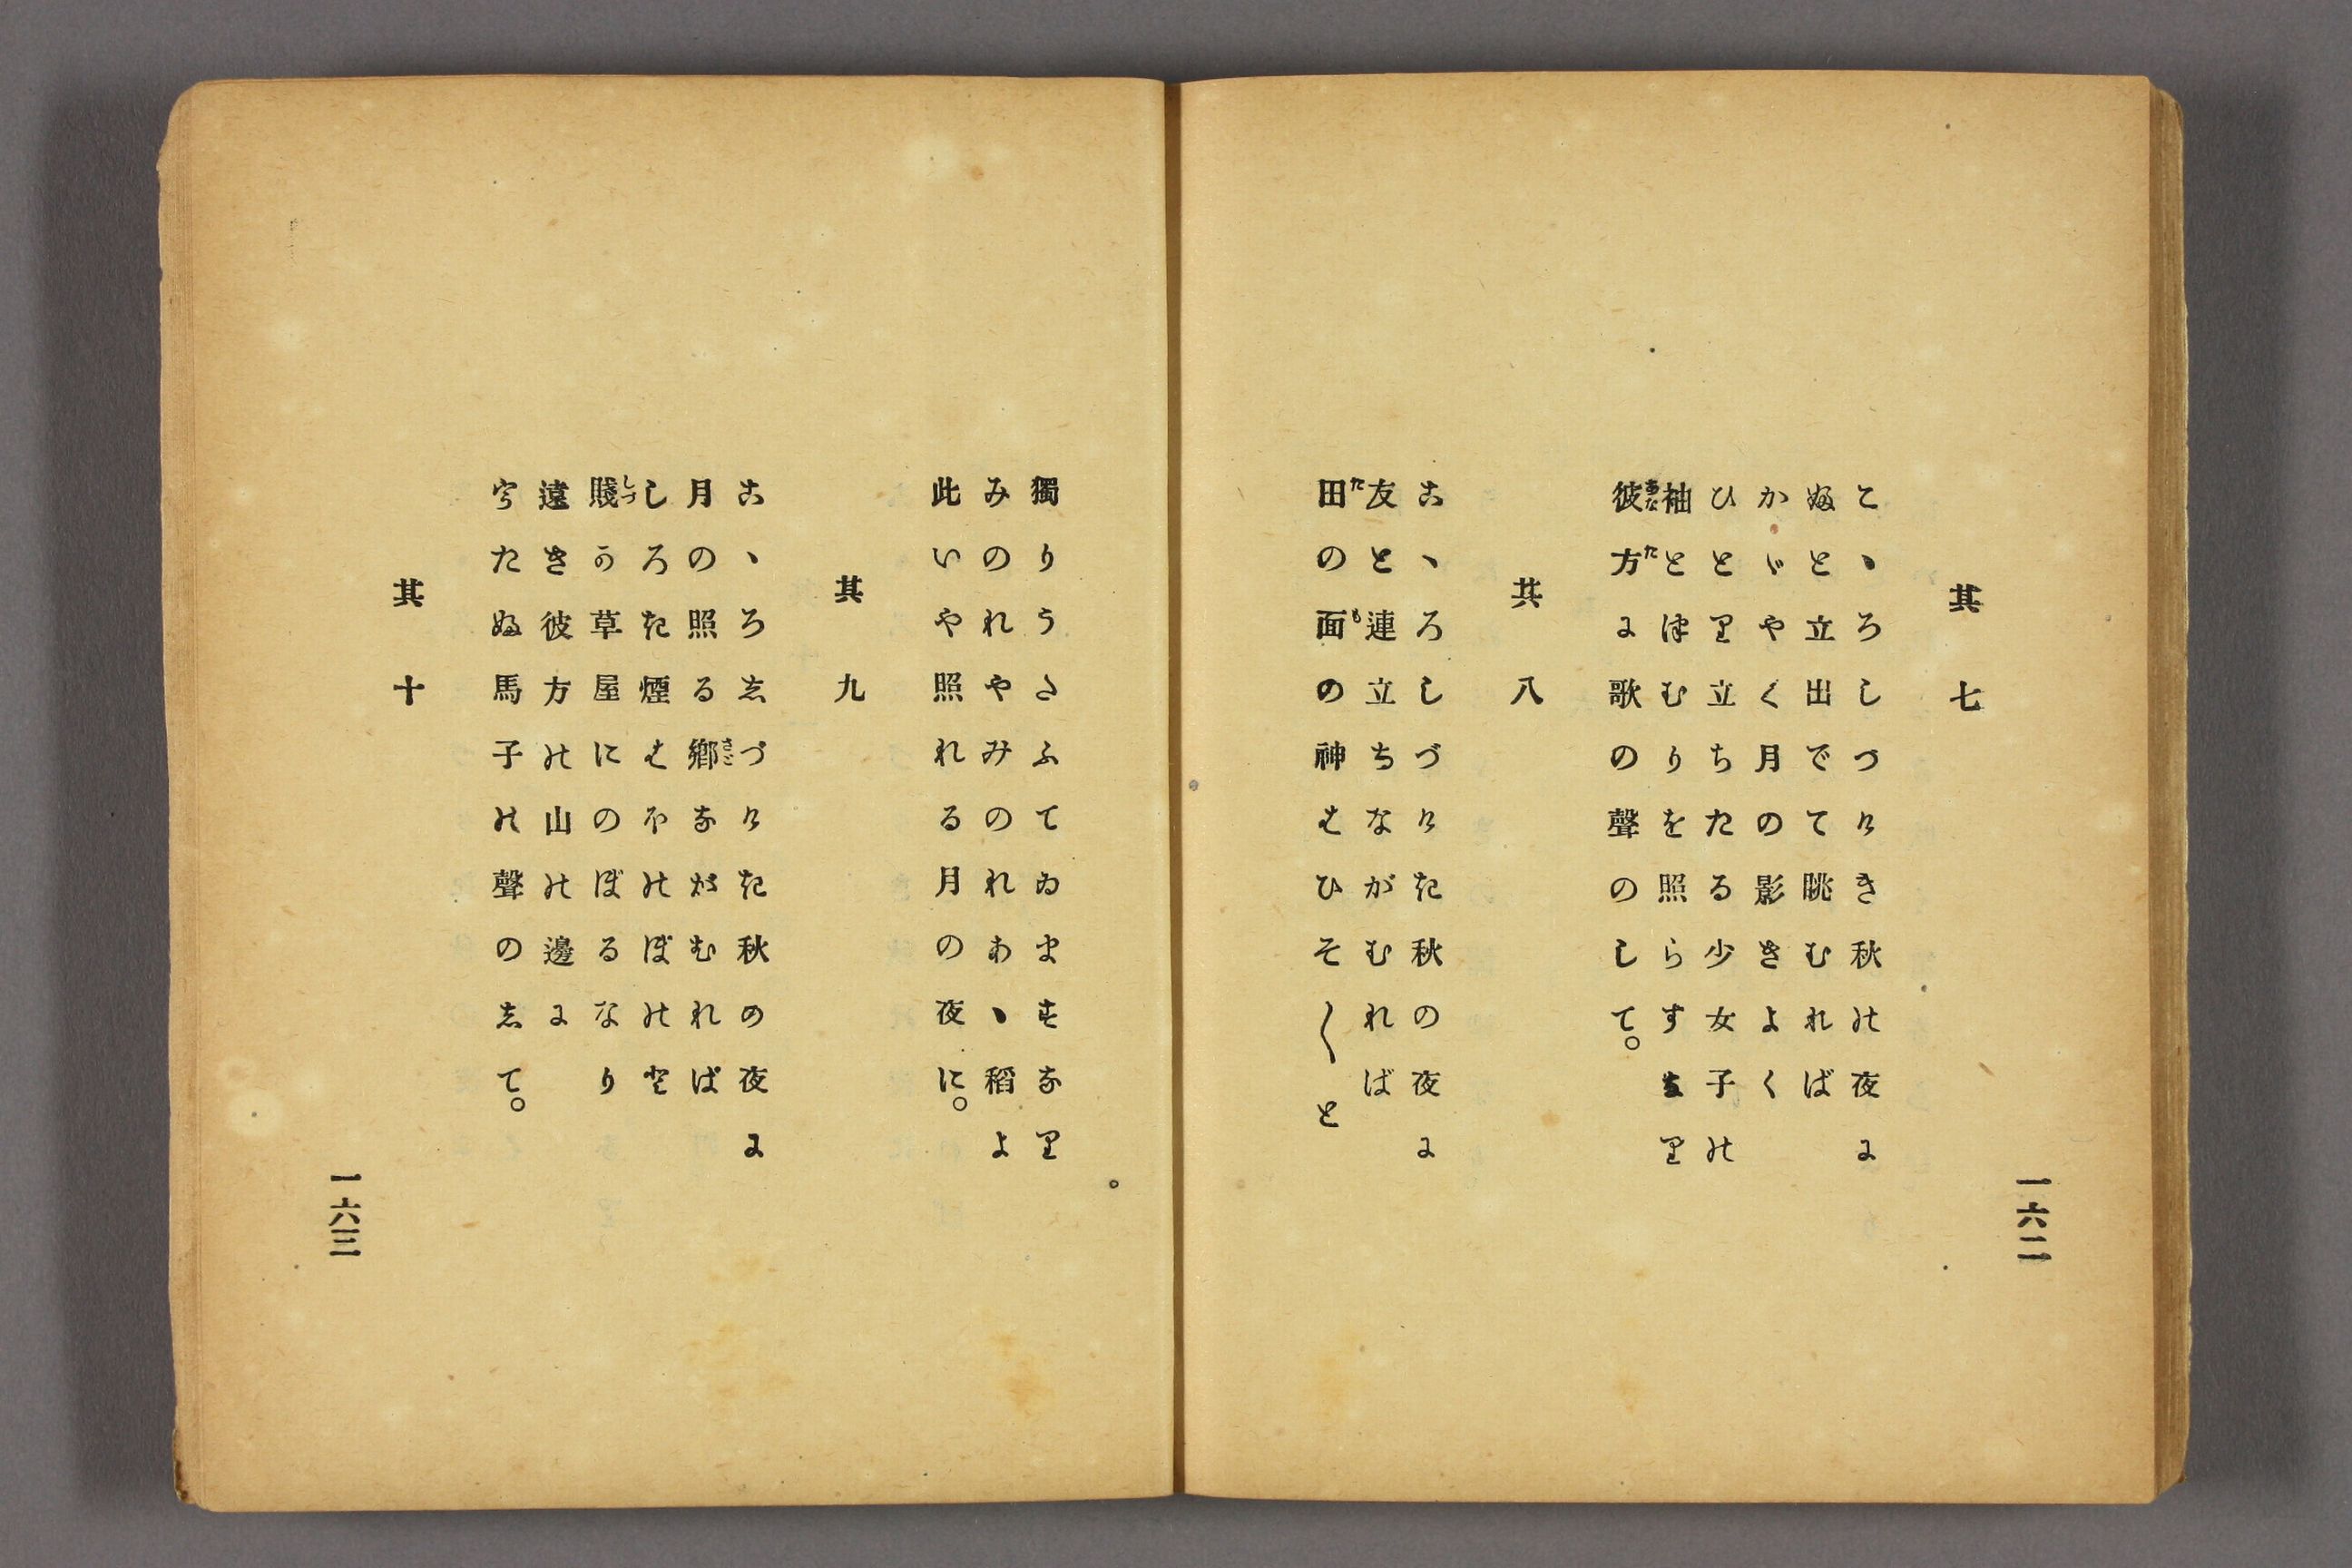 其七
こゝろしづけき秋の夜に
ふと立出でて眺むれば
かゞやく月の影きよく
ひとり立ちたる少女子の
袖とつむりを照らすなり
彼方に歌の聲のして。
其八
こゝろしづけき秋の夜に
友と連立ちながむれば
田の面の神はひそ〱と
一六二
獨りうたふてゐますなり
みのれやみのれあゝ稻よ
此いや照れる月の夜に。
其九
こゝろしづけき秋の夜に
月の照る鄕ながむれば
しろき煙はほのぼのと
賤が草屋にのぼるなり
遠き彼方の山の邊に
うたふ馬子の聲のして。
其十
一六三